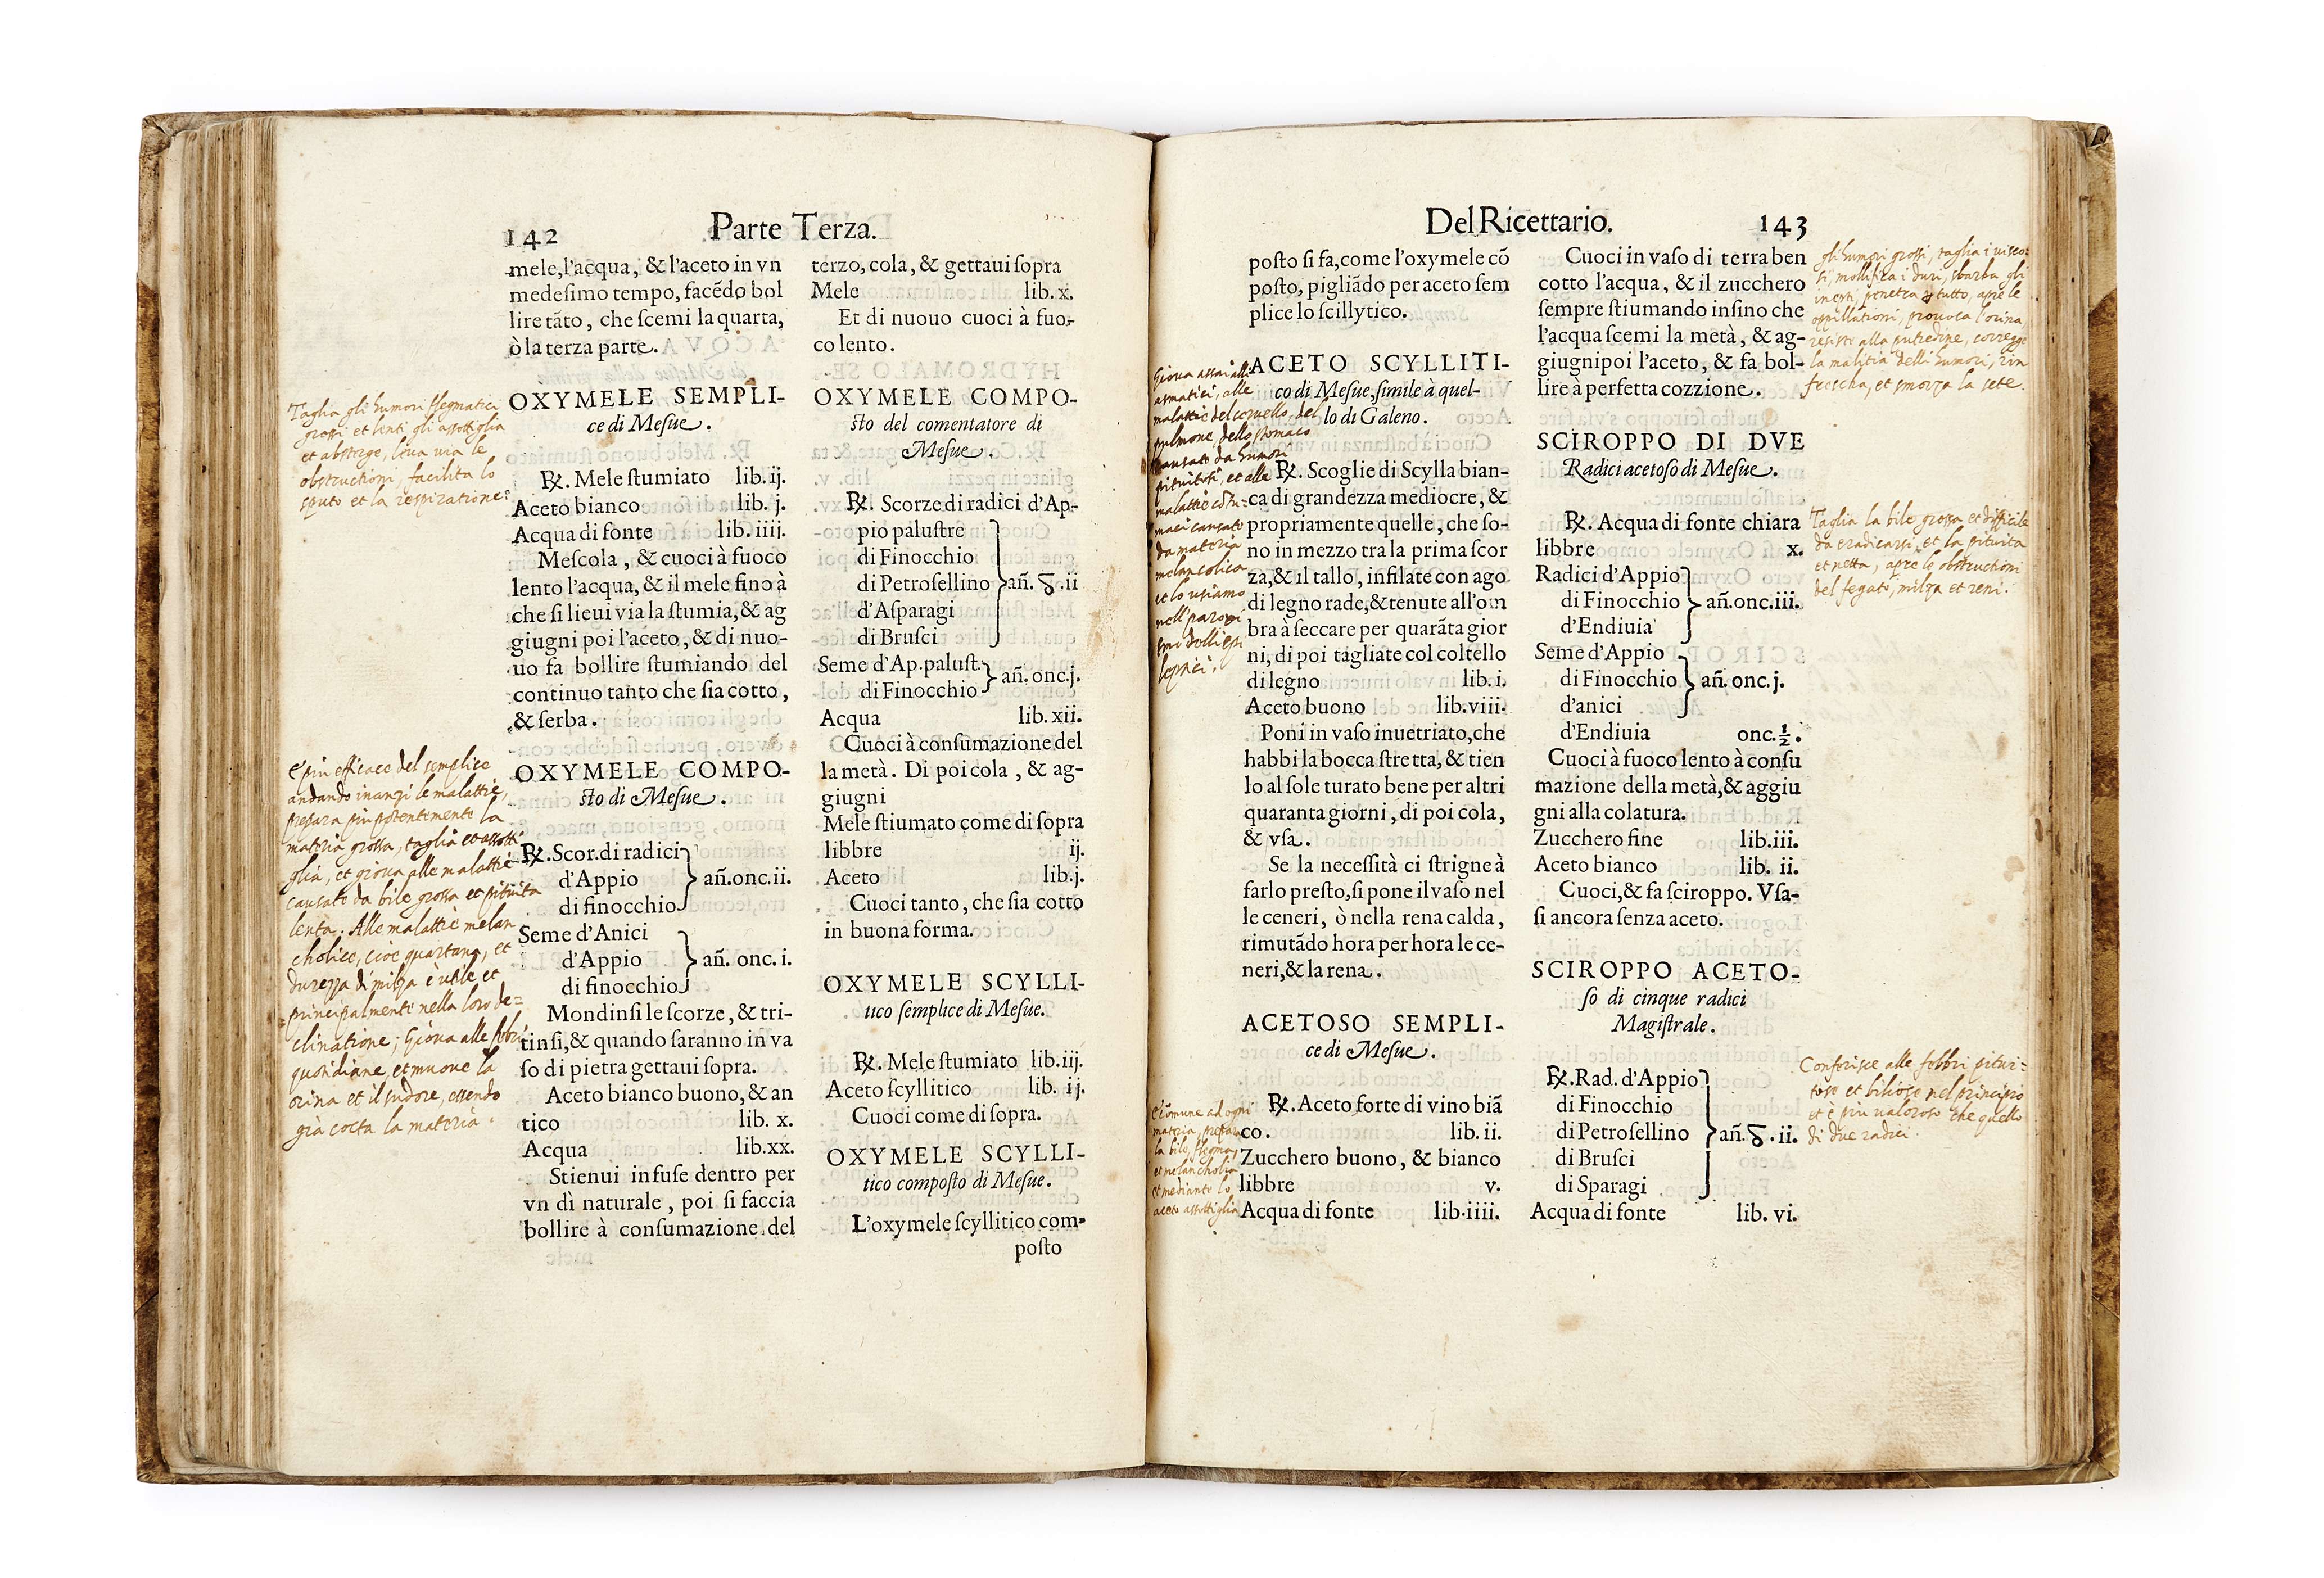 142
Parte Terza.
mele, l'acqua, & l'aceto in vn
medeſimo tempo, facẽdo bol
lire tãto, che ſcemi la quarta,
ò la terza parte.
OXYMELE SEMPLI-
ce di Meſue.
℞. Mele ſtumiato lib. ij.
Aceto bianco lib. j.
Acqua di fonte lib. iiij.
Meſcola, & cuoci à fuoco
lento l'acqua, & il mele fino à
che ſi lieui via la ſtumia, & ag
giugni poi l'aceto, & di nuo-
uo fa bollire ſtumiando del
continuo tanto che ſia cotto,
& ſerba.
OXYMELE COMPO-
ſto di Meſue.
℞. Scor. di radici
d'Appio } añ. onc. ii.
di finocchio
Seme d'Anici
d'Appio } añ. onc. i.
di finocchio
Mondinſi le ſcorze, & tri-
tinſi, & quando ſaranno in va
ſo di pietra gettaui ſopra.
Aceto bianco buono, & an
tico lib. x.
Acqua lib. xx.
Stienui infuſe dentro per
vn dì naturale, poi ſi faccia
bollire à conſumazione del
terzo, cola, & gettaui ſopra
Mele lib. x.
Et di nuouo cuoci à fuo-
co lento.
OXYMELE COMPO-
ſto del comentatore di
Meſue.
℞. Scorze di radici d'Ap-
pio paluſtre
di Finocchio
di Petroſellino } añ. ℥. ii
d'Aſparagi
di Bruſci
Seme d'Ap. paluſt.
di Finocchio } añ. onc. j.
Acqua lib. xii.
Cuoci à conſumazione del
la metà. Di poi cola, & ag-
giugni
Mele ſtiumato come di ſopra
libbre ij.
Aceto lib. j.
Cuoci tanto, che ſia cotto
in buona forma.
OXYMELE SCYLLI-
tico ſemplice di Meſue.
℞. Mele ſtumiato lib. iij.
Aceto ſcyllitico lib. ij.
Cuoci come di ſopra.
OXYMELE SCYLLI-
tico compoſto di Meſue.
L'oxymele ſcyllitico com-
poſto
Taglia gli humori flegmatici
grossi et lenti gli assottiglia
et absterge, leua uia le
obstructioni, facilita lo
sputo et la respiratione
E' piu efficace del semplice
andando inanzi le malattie,
prepara piu potentemente la
materia grossa, taglia et assotti
glia, et gioua alle malattie
causate da bile grossa et pituita
lenta. Alle malattie melan
cholice, cioè quartana, et
durezza di milza è utile et
principalmente nella loro de=
clinatione; Gioua alle febri
quotidiane, et muoue la
orina et il sudore, essendo
già cotta la materia.
Del Ricettario.
143
poſto ſi fa, come l'oxymele cõ
poſto, pigliãdo per aceto ſem
plice lo ſcillytico.
ACETO SCYLLITI-
co di Meſue, ſimile à quel-
lo di Galeno.
℞. Scoglie di Scylla bian-
ca di grandezza mediocre, &
propriamente quelle, che ſo-
no in mezzo tra la prima ſcor
za, & il tallo, infilate con ago
di legno rade, & tenute all'om
bra à ſeccare per quarãta gior
ni, di poi tagliate col coltello
di legno lib. i.
Aceto buono lib. viii.
Poni in vaſo inuetriato, che
habbi la bocca ſtretta, & tien
lo al ſole turato bene per altri
quaranta giorni, di poi cola,
& vſa.
Se la neceſſità ci ſtrigne à
farlo preſto, ſi pone il vaſo nel
le ceneri, ò nella rena calda,
rimutãdo hora per hora le ce-
neri, & la rena.
ACETOSO SEMPLI-
ce di Meſue.
℞. Aceto forte di vino biã
co. lib. ii.
Zucchero buono, & bianco
libbre v.
Acqua di fonte lib. iiii.
Cuoci in vaſo di terra ben
cotto l'acqua, & il zucchero
ſempre ſtiumando inſino che
l'acqua ſcemi la metà, & ag-
giugni poi l'aceto, & fa bol-
lire à perfetta cozzione.
SCIROPPO DI DVE
Radici acetoſo di Meſue.
℞. Acqua di fonte chiara
libbre x.
Radici d'Appio
di Finocchio } añ. onc. iii.
d'Endiuia
Seme d'Appio
di Finocchio } añ. onc. j.
d'anici
d'Endiuia onc. ½.
Cuoci à fuoco lento à conſu
mazione della metà, & aggiu
gni alla colatura.
Zucchero fine lib. iii.
Aceto bianco lib. ii.
Cuoci, & fa ſciroppo. Vſa-
ſi ancora ſenza aceto.
SCIROPPO ACETO-
ſo di cinque radici
Magiſtrale.
℞. Rad. d'Appio
di Finocchio
di Petroſellino } añ. ℥. ii.
di Bruſci
di Sparagi
Acqua di fonte lib. vi.
Gioua assai alli
asmatici, alle
malattie del ceruello, del
pulmone, dello stomaco
causate da humori
pituitosi, et alle
malattie cõtu=
maci causate
da materia
melancolica
et lo usiamo
nell'parosi
smi delli epi
leptici.
E' comune ad ogni
materia, prepara
la bile, flegma,
et melancholia
et mediante lo
aceto assottiglia
gli humori grossi, taglia i uisco=
si, mollifica i duri, sbarba gli
inerti, penetra p tutto, apre le
oppillationi, prouoca l'orina,
resiste alla putredine, corregge
la malitia delli humori, rin
frescha, et smorza la sete.
Taglia la bile grossa et difficile
da eradicarsi, et la pituita
et netta, apre le obstructioni
del fegato, milza et reni.
Conferisce alle febbri pitui=
tose et biliose nel principio
et è piu ualoroso che quello
di due radici.